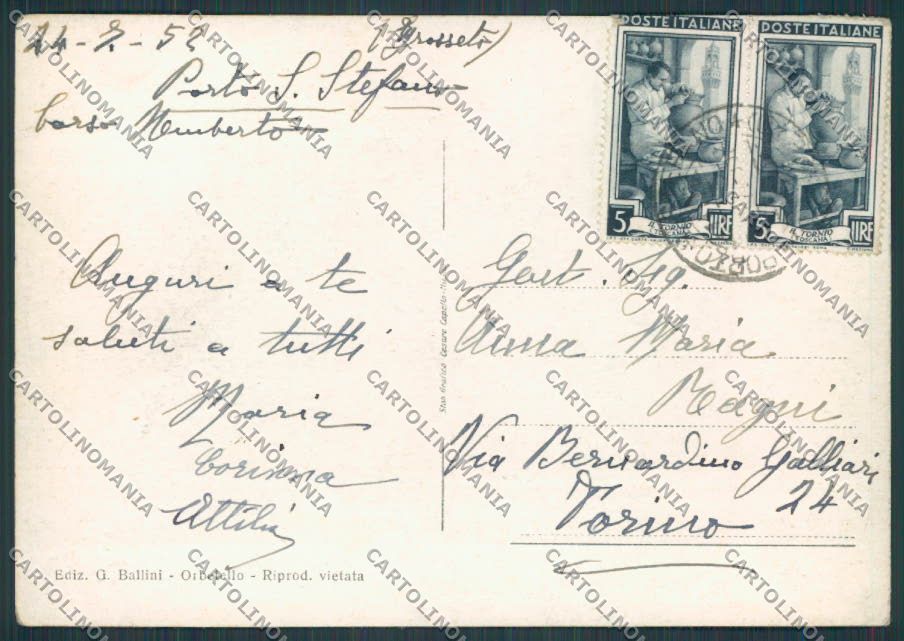 24-7-52 (Grosseto)
Porto S. Stefano
Corso Umberto
Auguri a te
saluti a tutti
Maria
Corinna
Attilia
Ediz. G. Ballini - Orbetello - Riprod. vietata
Stab. Grafico Cesare Capello - Milano
POSTE ITALIANE
5 LIRE
IL TORNIO
TOSCANA
POSTE ITALIANE
5 LIRE
IL TORNIO
TOSCANA
Gent. Sig.
Anna Maria
Magni
Via Bernardino Galliari
24
Torino
CARTOLINOMANIA